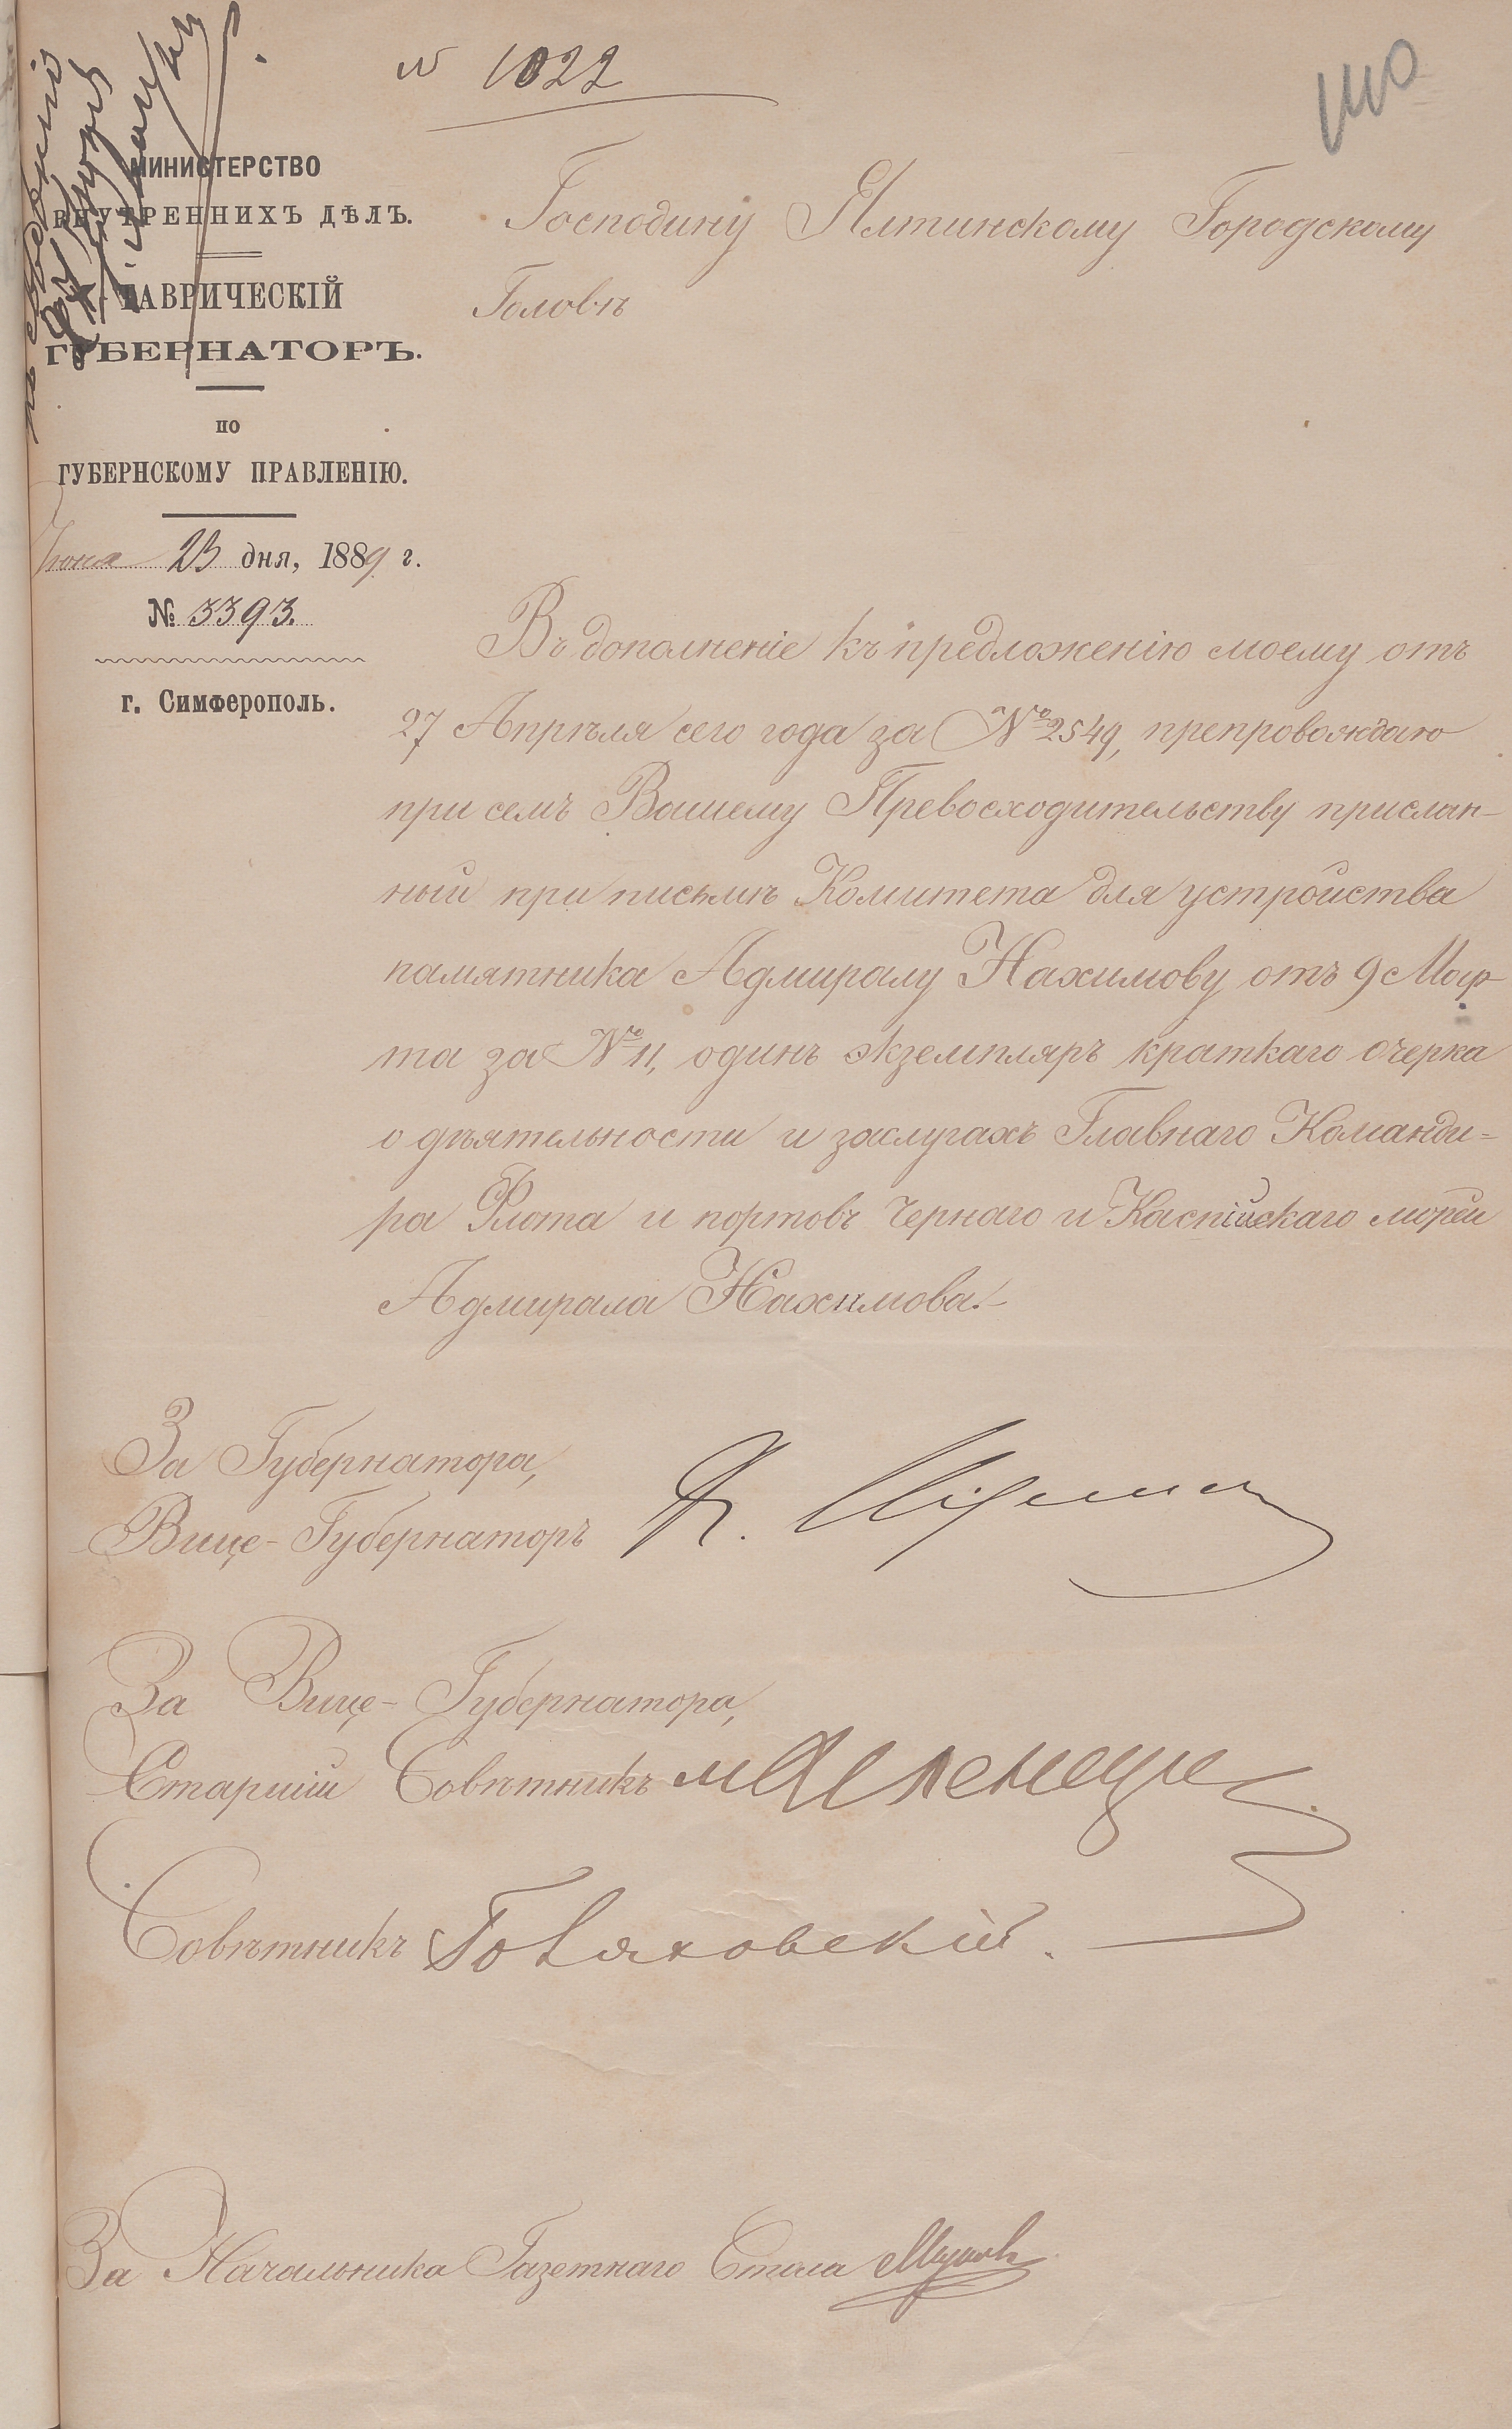 № 1022
МИНИСТЕРСТВО
ВНУТРЕННИХЪ ДѢЛЪ.
ТАВРИЧЕСКІЙ
ГУБЕРНАТОРЪ.
ПО
ГУБЕРНСКОМУ ПРАВЛЕНІЮ.
Іюня 23 дня, 1889 г.
№ 3393.
г. Симферополь.
Господину Ялтинскому Городскому
Головѣ
Въ дополненіе къ предложенію моему отъ
27 Апрѣля сего года за № 2549, препровождаю
при семъ Вашему Превосходительству прислан-
ный при письмѣ Комитета для устройства
памятника Адмиралу Нахимову отъ 9 Мар-
та за № 11, одинъ экземпляръ краткаго очерка
о дѣятельности и заслугахъ Главнаго Команди=
ра Флота и портовъ Чернаго и Каспійскаго морей
Адмирала Нахимова.-
За Губернатора,
Вице-Губернаторъ
За Вице-Губернатора,
Старшій Совѣтникъ
Совѣтникъ
За Начальника Газетнаго Стола